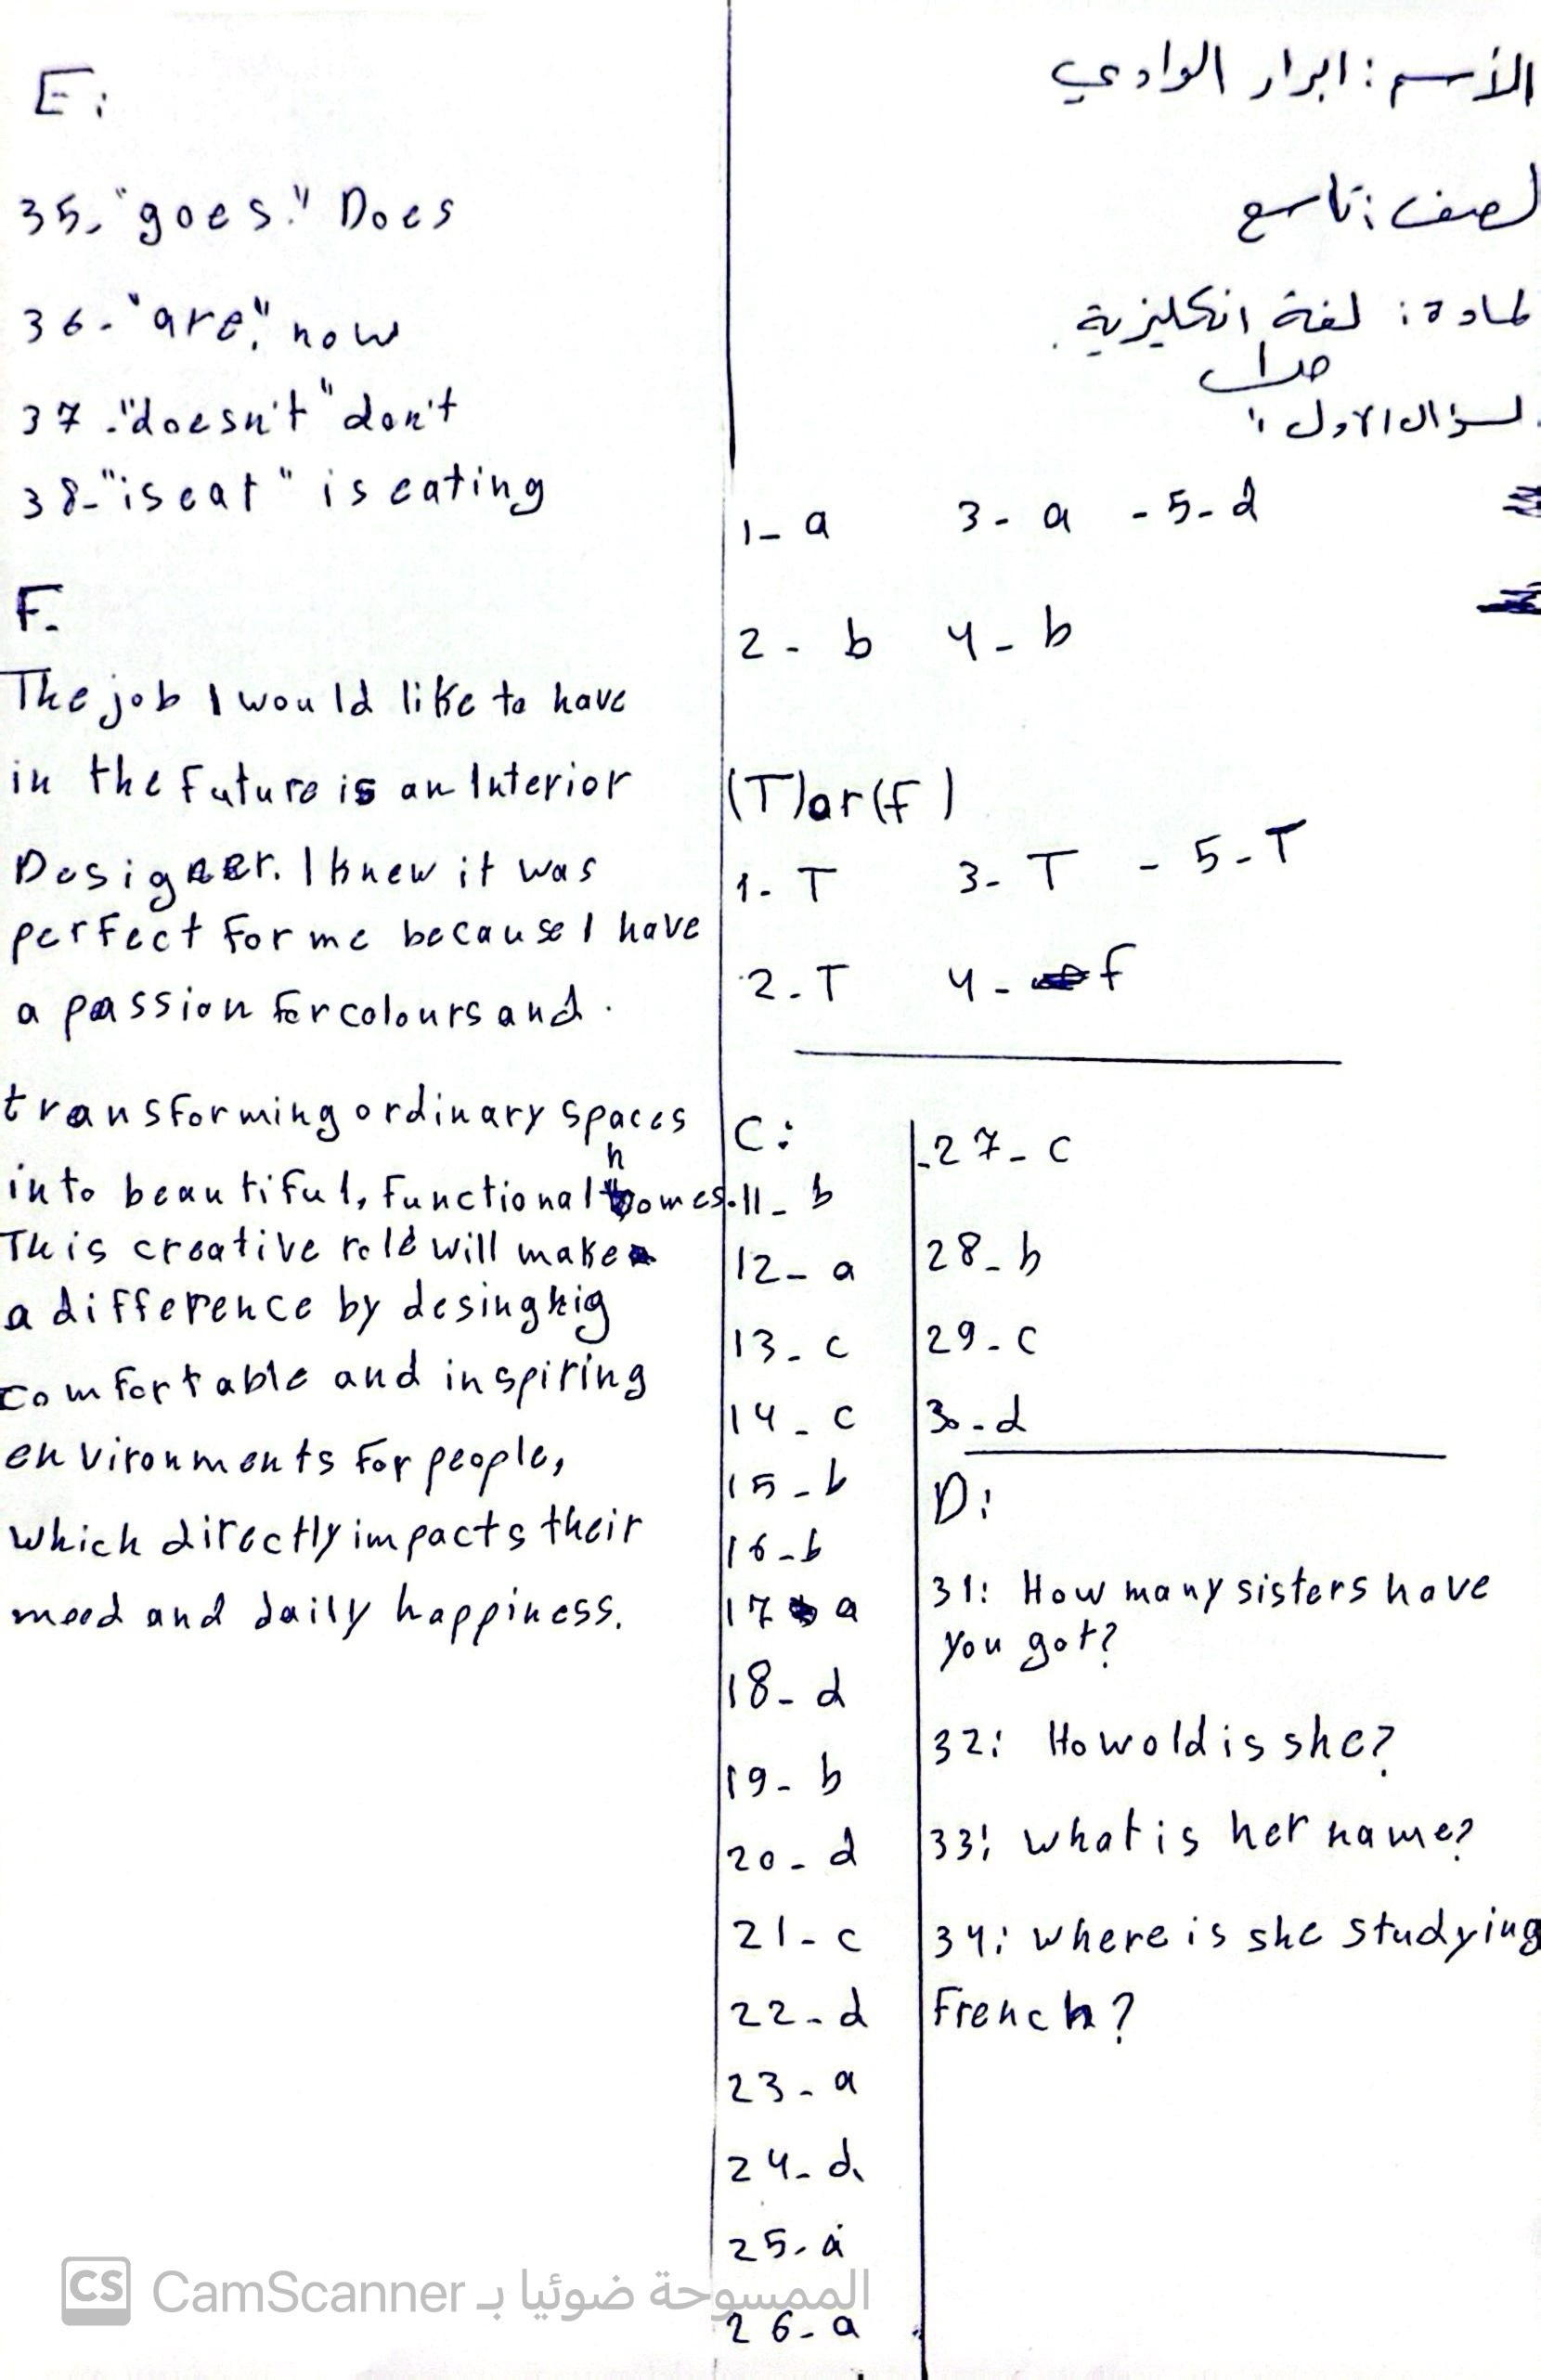 الأسم : ابرار الوادي
لصف : تاسع
لمادة : لغة انكليزية
لسؤال الاول :
1- a 3- a - 5- d
2- b 4- b
(T) or (f)
1- T 3- T - 5- T
2- T 4- f
C:
11- b
12- a
13- c
14- c
15- b
16- b
17 a
18- d
19- b
20- d
21- c
22- d
23- a
24- d
25- a
26- a
27- c
28- b
29- c
30- d
D:
31: How many sisters have
you got?
32: How old is she?
33: what is her name?
34: where is she studying
French?
E:
35- "goes." Does
36- "are". now
37. "doesn't" don't
38- "is eat" is eating
F.
The job I would like to have
in the future is an Interior
Designer. I knew it was
perfect for me because I have
a passion for colours and.
transforming ordinary spaces
into beautiful, functional homes.
This creative role will make
a difference by desinghig
comfortable and inspiring
environments for people,
which directly impacts their
mood and daily happiness.
CS CamScanner الممسوحة ضوئيا بـ